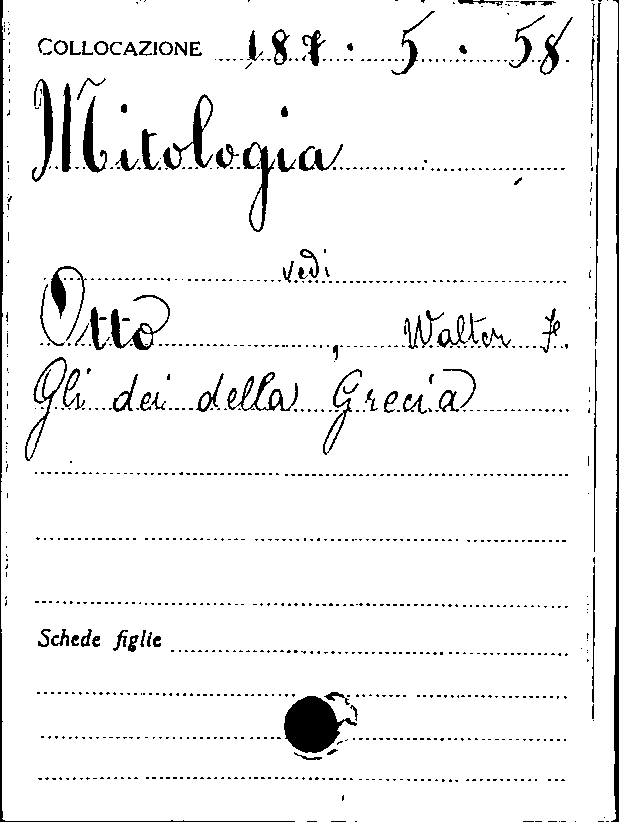 COLLOCAZIONE 187 . 5 . 58
Mitologia
vedi
Otto, Walter F.
Gli dei della Grecia
Schede figlie